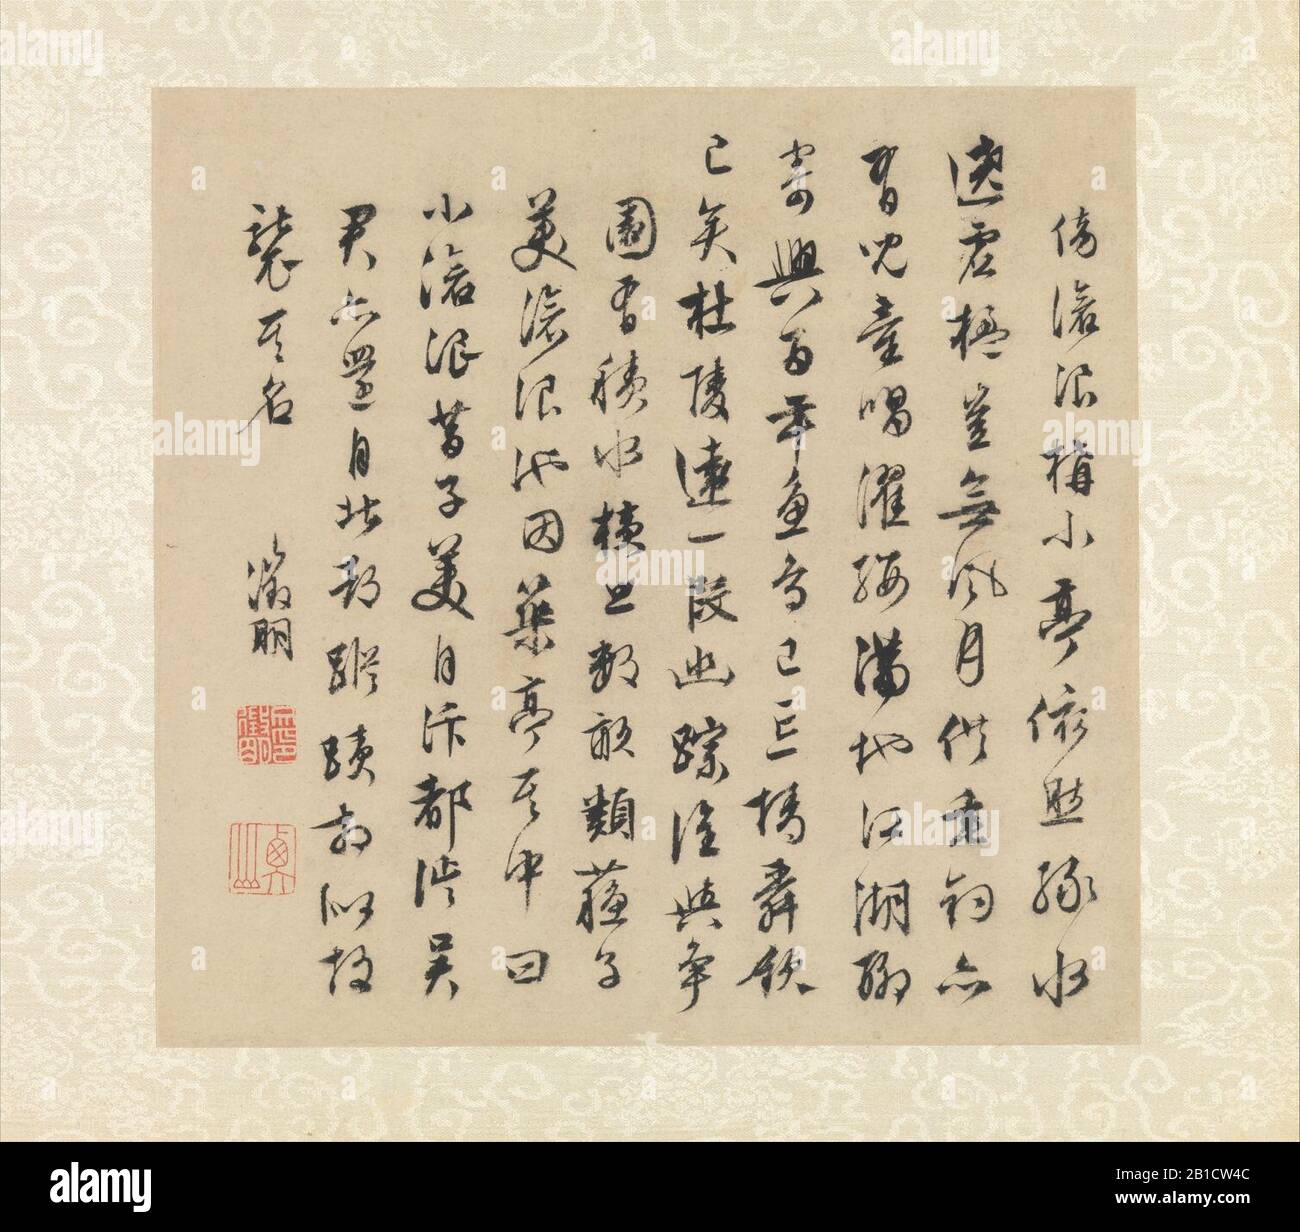 傍滄浪構小亭依然綠水
遶虛楹豈無風月供垂釣亦
有兒童唱濯纓滿地江湖聊
寄興百年魚鳥已忘情舜欽
已矣杜陵遠一段幽踪誰與爭
園有積水橫亘數畝類蘇子
美滄浪池因築亭其中曰
小滄浪昔子美自汴都徙吳
君亦還自北都蹤蹟相似故
襲其名 徵明
alamy
Image ID: 2B1CW4C
www.alamy.com